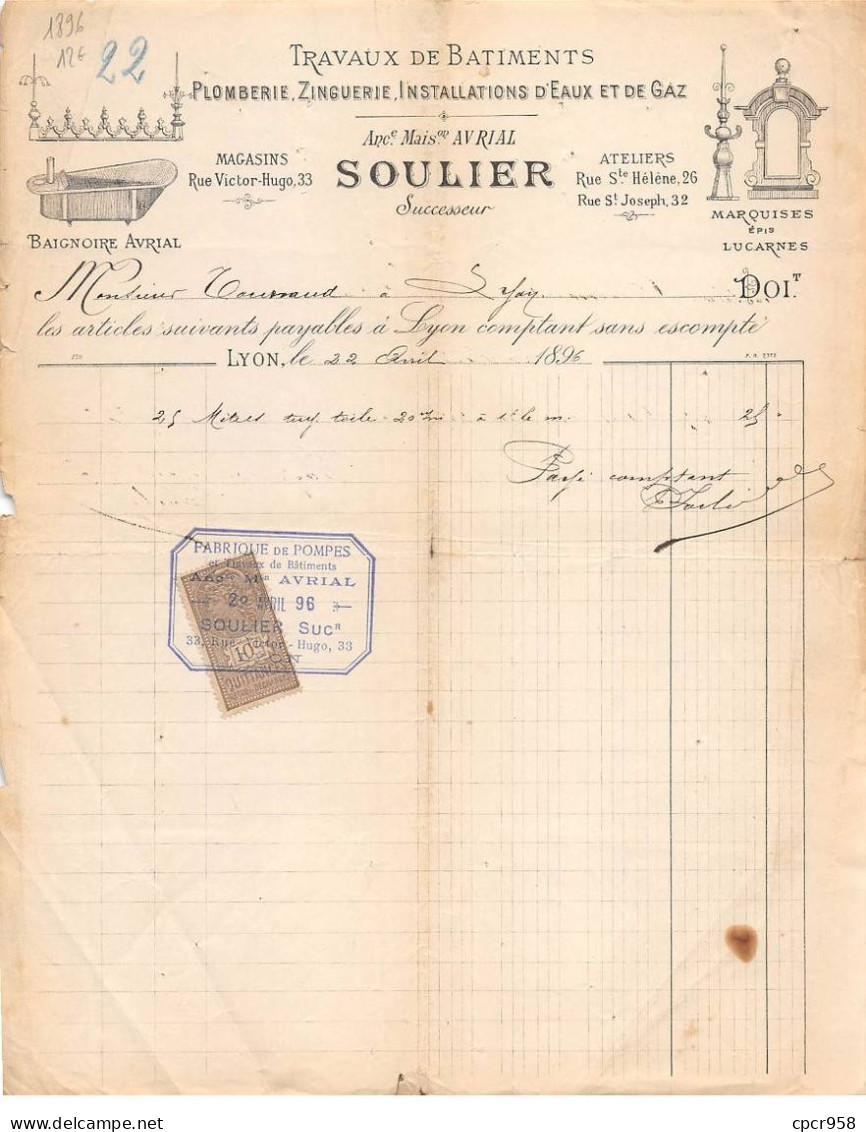 1896
12€
22
TRAVAUX DE BATIMENTS
PLOMBERIE, ZINGUERIE, INSTALLATIONS D'EAUX ET DE GAZ
Ancᵉ Maisᵒⁿ AVRIAL
MAGASINS
Rue Victor-Hugo, 33
SOULIER
Successeur
ATELIERS
Rue Sᵗᵉ Hélène, 26
Rue Sᵗ Joseph, 32
BAIGNOIRE AVRIAL
MARQUISES
ÉPIS
LUCARNES
Monsieur à Lyon DOIT.
les articles suivants payables à Lyon comptant sans escompte
LYON, le 22 Avril 1896
25 Mètres toile à 1f le m. 25
Payé comptant
FABRIQUE DE POMPES
et Travaux de Bâtiments
Ancⁿᵉ Mᵒⁿ AVRIAL
AVRIL 96
SOULIER SUCᴿ
33, Rue Victor-Hugo, 33
LYON
10
QUITTANCES
cpcr958